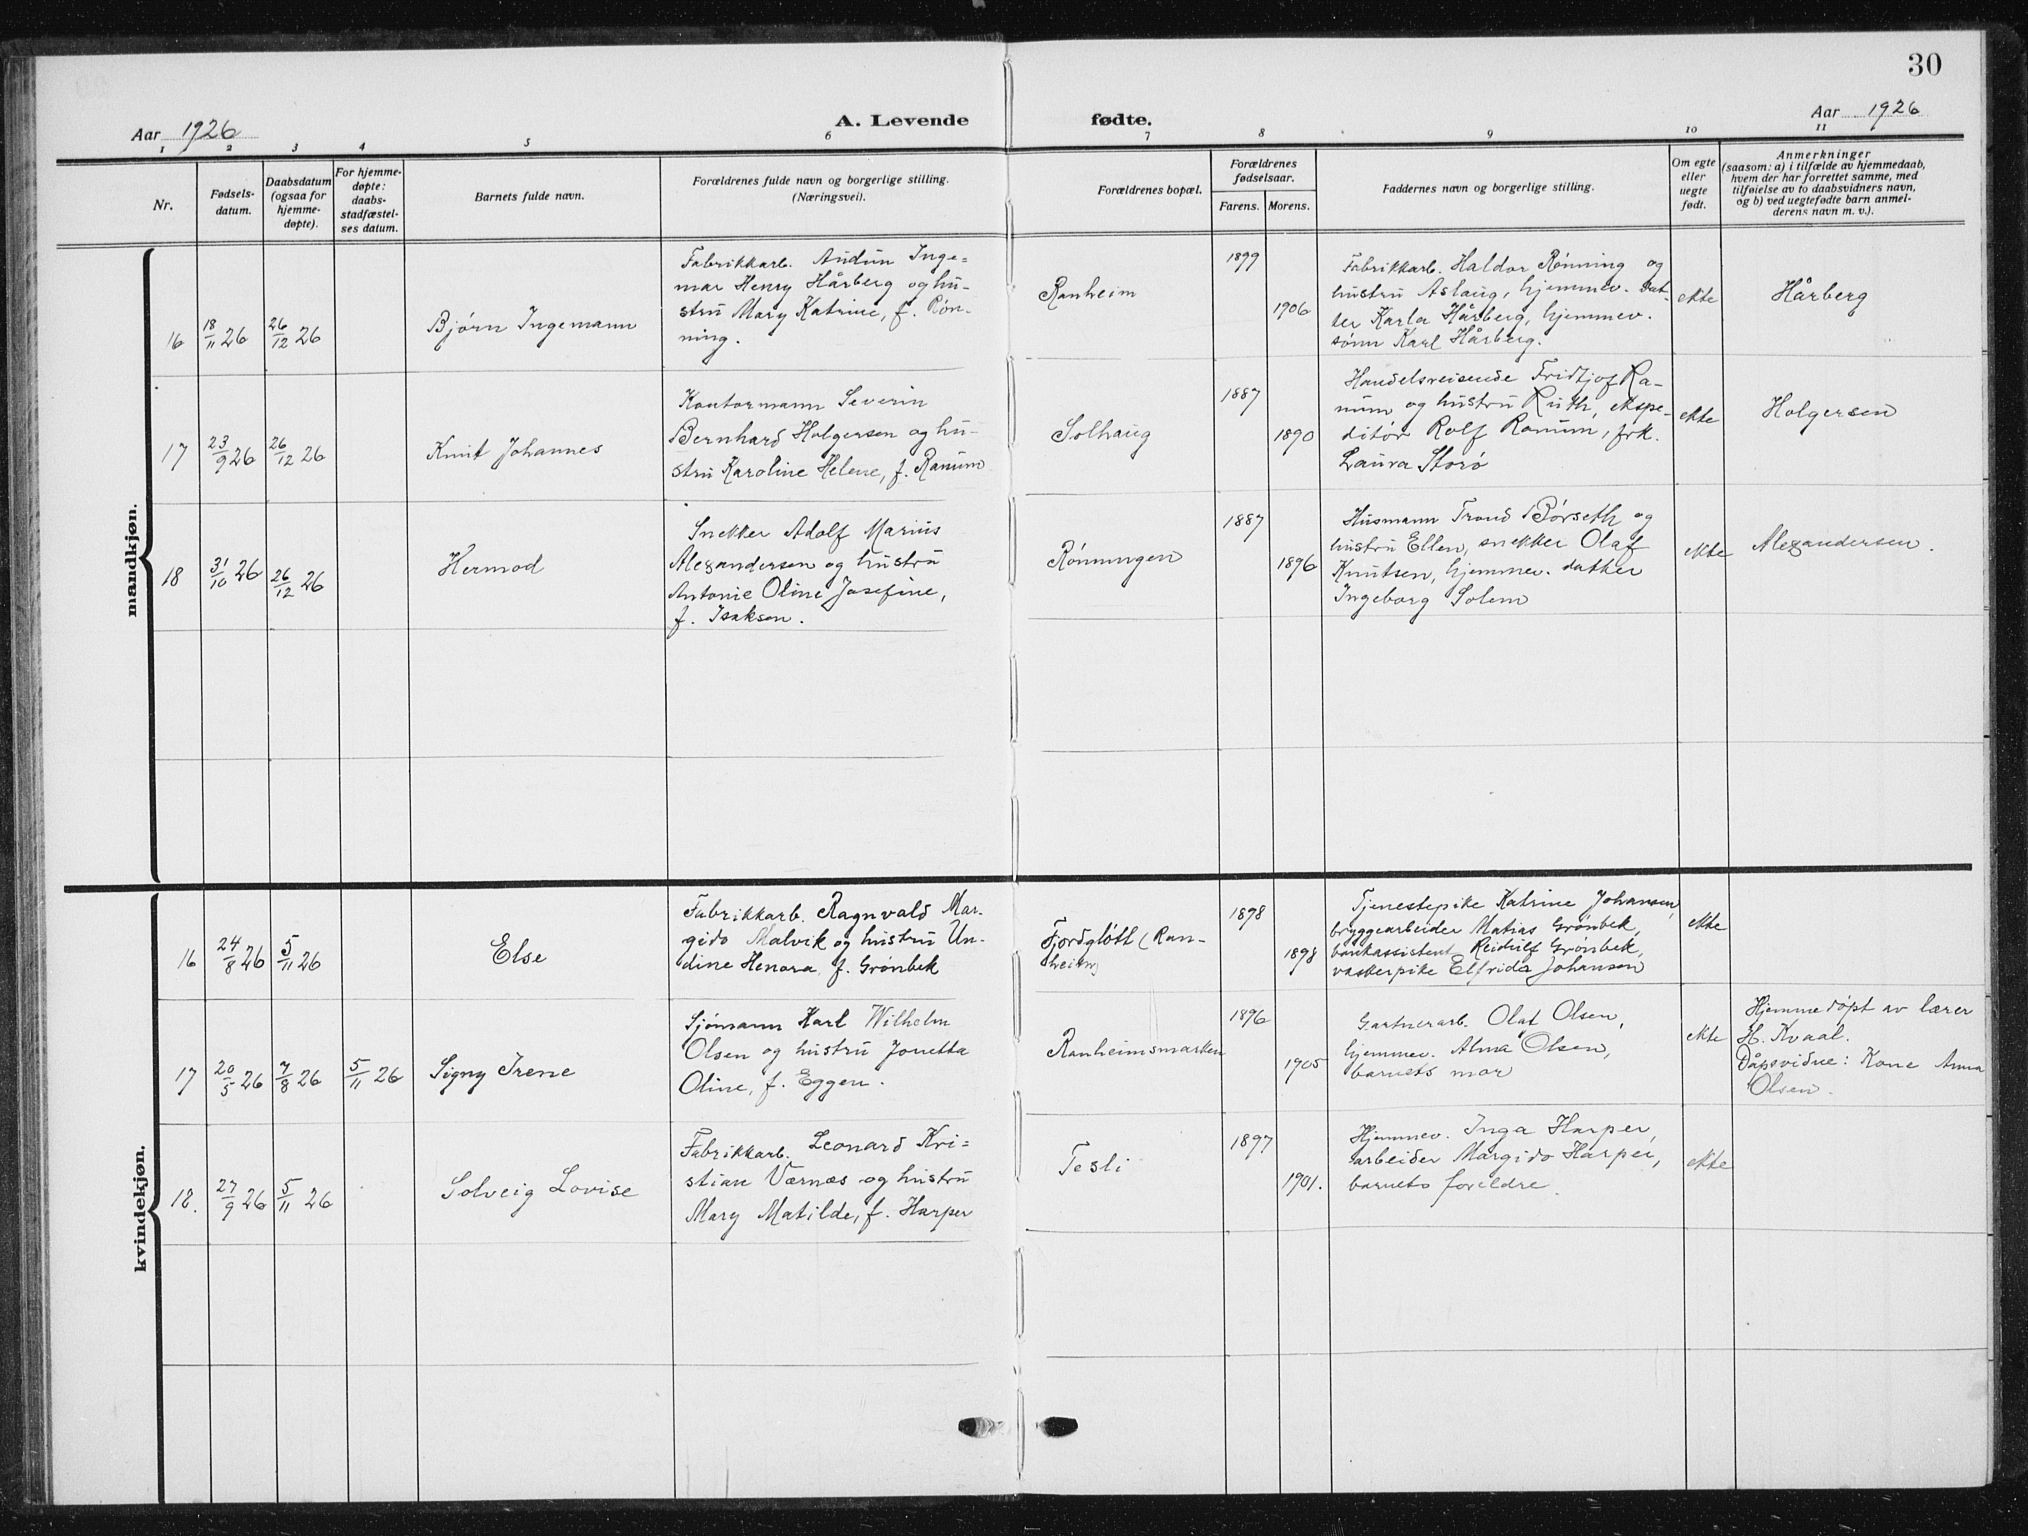 30
Aar 1926
A. Levende
fødte.
Aar 1926
1 2 3 4 5 6 7 8 9 10 11
Nr.
Fødsels-
datum.
Daabsdatum
(ogsaa for
hjemme-
døpte).
For hjemme-
døpte:
daabs-
stadfæstel-
ses datum.
Barnets fulde navn.
Forældrenes fulde navn og borgerlige stilling.
(Næringsvei).
Forældrenes bopæl.
Forældrenes
fødselsaar.
Farens. Morens.
Faddernes navn og borgerlige stilling.
Om egte
eller
uegte
født.
Anmerkninger
(saasom: a) i tilfælde av hjemmedaab,
hvem der har forrettet samme, med
tilføielse av to daabsvidners navn,
og b) ved uegtefødte barn anmel-
derens navn m. v.).
mandkjøn.
16
18/11 26
26/12 26
Bjørn Ingemann
Fabrikkarb. Audun Inge=
mar Henry Hårberg og hu-
stru Mary Katrine, f. Røn-
ning.
Ranheim
1899
1906
Fabrikkarb. Haldor Rønning og
hustru Aslaug, hjemmev. dat-
ter Karla Hårberg, hjemmev.
sønn Karl Hårberg.
ekte
Hårberg
17
23/9 26
26/12 26
Knut Johannes
Kontormann Severin
Bernhard Holgersen og hu-
stru Karoline Helene, f. Ranum
Solhaug
1887
1890
Handelsreisende Fridtjof Ra-
num og hustru Ruth, ekspe-
ditør Rolf Ranum, frk.
Laura Storø
ekte
Holgersen
18
31/10 26
26/12 26
Hermod
Snekker Adolf Marius
Alexandersen og hustru
Antonie Oline Josefine,
f. Isaksen.
Rønningen
1887
1896
Husmann Trond Børseth og
hustru Ellen, snekker Olaf
Knutsen, hjemmev. datter
Ingeborg Solem
ekte
Alexandersen.
kvindekjøn.
16
24/8 26
5/11 26
Else
Fabrikkarb. Ragnvald Mar-
gido Malvik og hustru Un-
dine Henora, f. Grønbek
Fjordgløtt (Ran-
heim)
1898
1898
Tjenestepike Katrine Johansen,
bryggearbeider Matias Grønbek,
bankassistent Reidulf Grønbek,
vaskerpike Elfrida Johansen
ekte
17
20/5 26
7/8 26
5/11 26
Signy Irene
Sjømann Karl Wilhelm
Olsen og hustru Jonetta
Oline, f. Eggen.
Ranheimsmarken
1896
1905
Gartnerarb. Olaf Olsen,
hjemmev. Alma Olsen,
barnets mor
ekte
Hjemmedøpt av lærer
H. Kvaal.
Dåpsvidne: Kone Anna
Olsen.
18.
27/9 26
5/11 26
Solveig Lovise
Fabrikkarb. Leonard Kri=
stian Værnæs og hustru
Mary Matilde, f. Harper
Tesli
1897
1901.
Hjemmev. Inga Harper,
arbeider Margido Harper,
barnets foreldre.
ekte